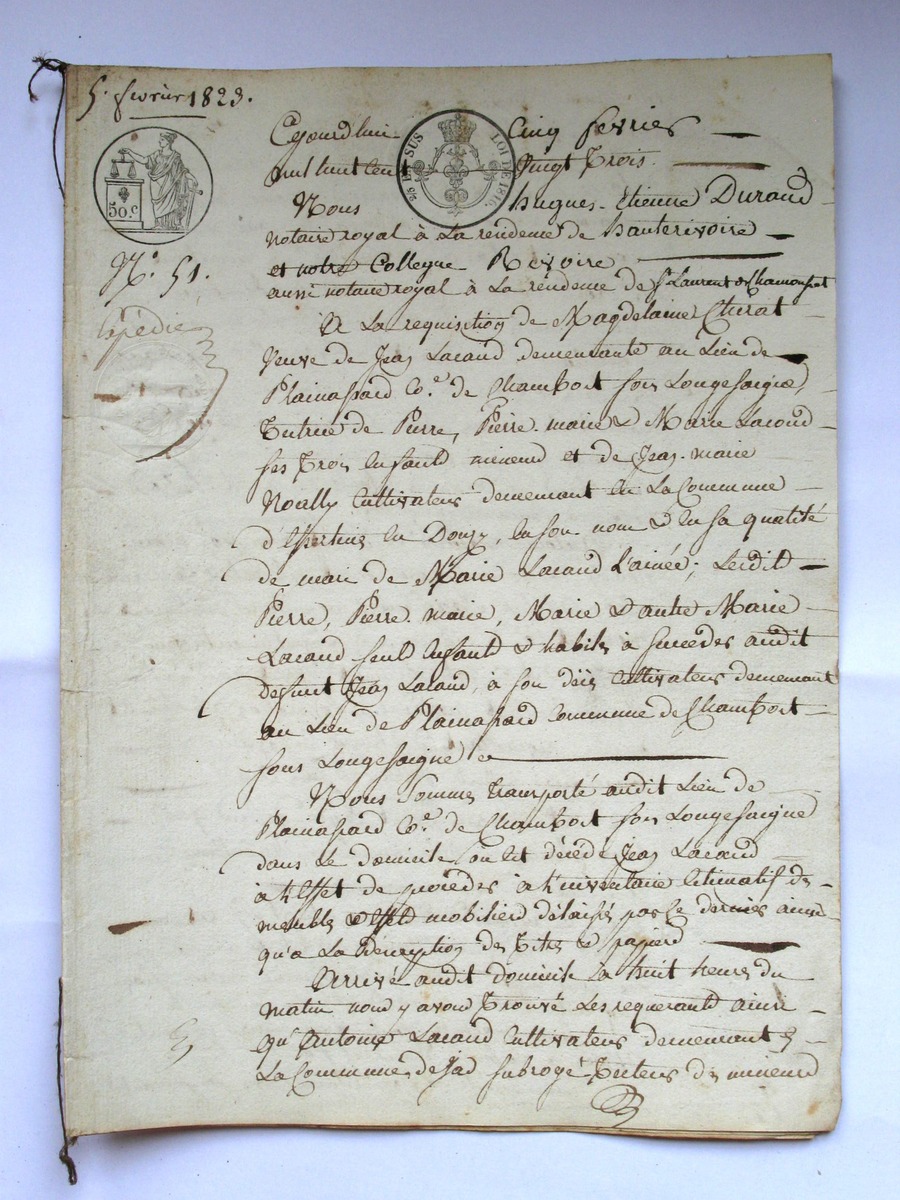 5. fevrier 1823.
50.C
2/5 EN SUS LOI DE 1816.
N.° 51.
Expédié
Cejourdhui Cinq fevrier
mil huit Cent Vingt Trois.
Nous hugues-Etienne Durand
notaire royal à La residence de hauterivoire
et notre Collegue Revoire
aussi notaire royal à La residence de St Laurent de Chamousset
A La requisition de Magdelaine Churat
Veuve de Jean Lacand demeurante au Lieu de
Plainassard Co.e de Chambost sous Longesaigne,
Tutrice de Pierre, Pierre marie & Marie Lacand
ses Trois Enfants mineurs et de Jean-marie
Noally Cultivateur demeurant En La Commune
d'Essertines En Donzy, En son nom & En sa qualité
de mari de Marie Lacand L'ainée; Lesdits
Pierre, Pierre marie, Marie & autre Marie
Lacand seuls Enfants & habiles à succeder audit
defunt Jean Lacand, à son décès Cultivateur demeurant
au Lieu de Plainassard Commune de Chambost
sous Longesaigne
Nous Sommes transporté audit Lieu de
Plainassard Co.e de Chambost sous Longesaigne
dans Le domicile ou Est décédé Jean Lacand
à L'Effet de proceder à L'inventaire Estimatif des
meubles & Effets mobiliers délaissés par Ce dernier ainsi
qu'a La Description des Titres & papiers
Arrivé audit domicile à huit heures du
matin nous y avons Trouvé Les requerants ainsi
qu'Antoine Lacand Cultivateur demeurant
La Commune de Jas subrogé-Tuteur des mineurs